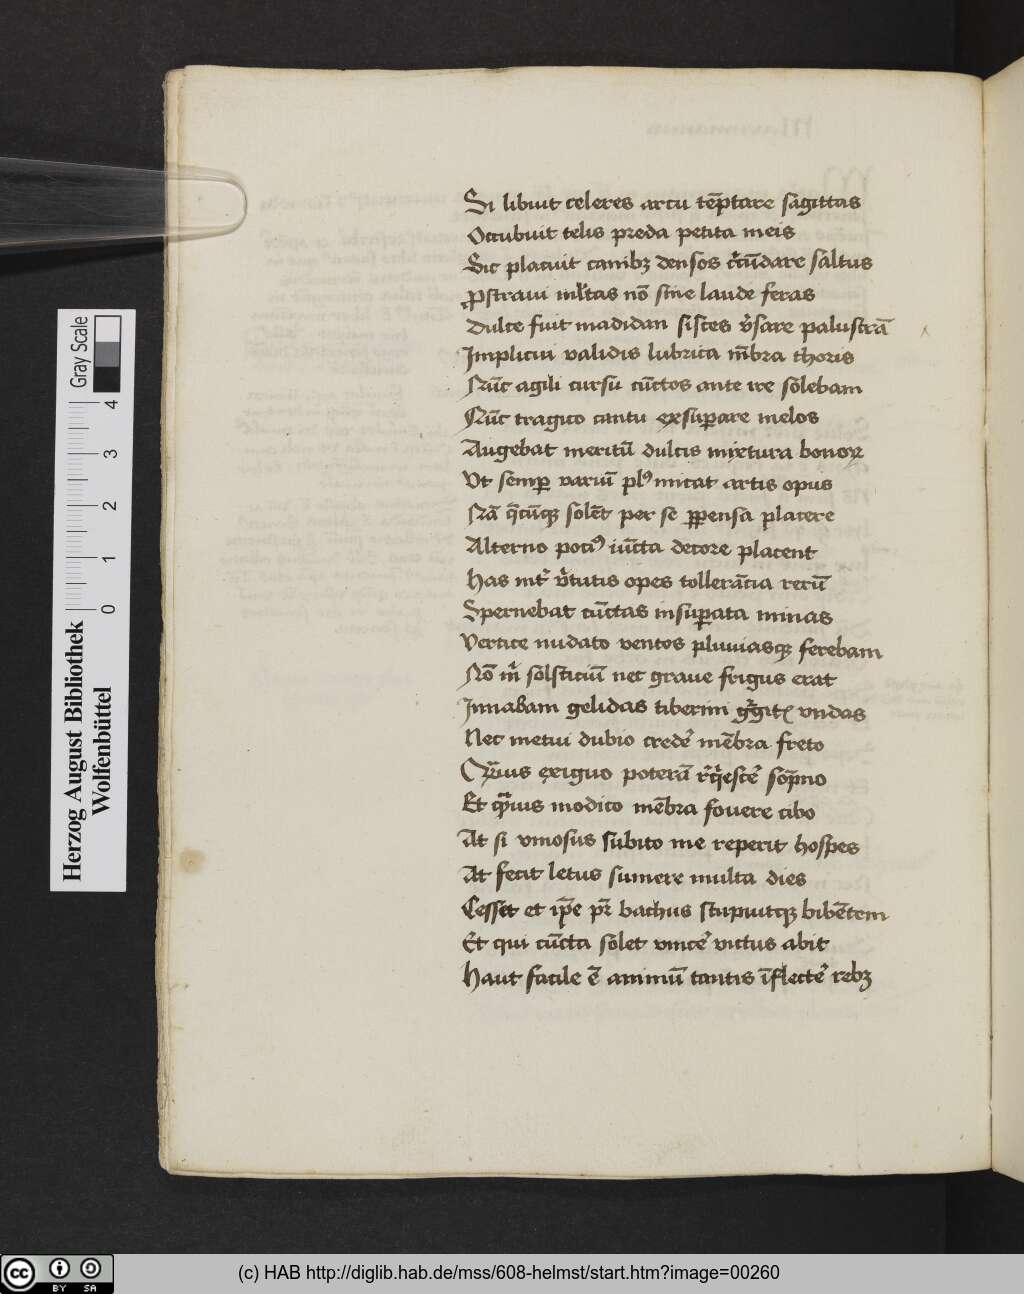 Si libuit celeres arcu te̅ptare sagittas
Occubuit telis preda petita meis
Sic placuit canibꝫ densos c̓cu̅dare saltus
ꝓstraui ml̓tas no̅ sine laude feras
Dulce fuit madidan sistes v̓sare palustra̅
Implicui validis lubrica m̅bra thoris
Nu̅c agili cursu̅ cu̅ctos ante ire solebam
Nu̅c tragico cantu exsuꝑare melos
Augebat meritu̅ dulcis mixtura bonoꝝ
Vt semꝑ variu̅ plꝰ micat artis opus
Na̅ q̅cu̅qꝫ sole̅t per se ꝑpensa placere
Alterno pociꝰ iu̅cta decore placent
Has int̓ v̓tutis opes tollera̅cia reru̅
Spernebat cu̅ctas insuꝑata minas
Vertice nudato ventos pluuiasqꝫ ferebam
No̅ m̓ solsticiu̅ nec graue frigus erat
Innabam gelidas tiberini gᷓgitꝭ vndas
Nec metui dubio crede̓ me̅bra freto
Qᷓuis exiguo potera̅ r̓q̓esce̓ sop̅no
Et qᷓuis modico me̅bra fouere cibo
At si vinosus subito me reperit hospes
At fecit letus sumere multa dies
Cesset et ip̅e pr̅ bachus stupuitqꝫ bibe̅tem
Et qui cu̅cta solet vince̓ victus abit
Haut facile e̅ animu̅ tantis i̅flecte̓ rebꝫ
Gray Scale
4
3
2
1
0
Herzog August Bibliothek
Wolfenbüttel
cc
BY SA
(c) HAB http://diglib.hab.de/mss/608-helmst/start.htm?image=00260